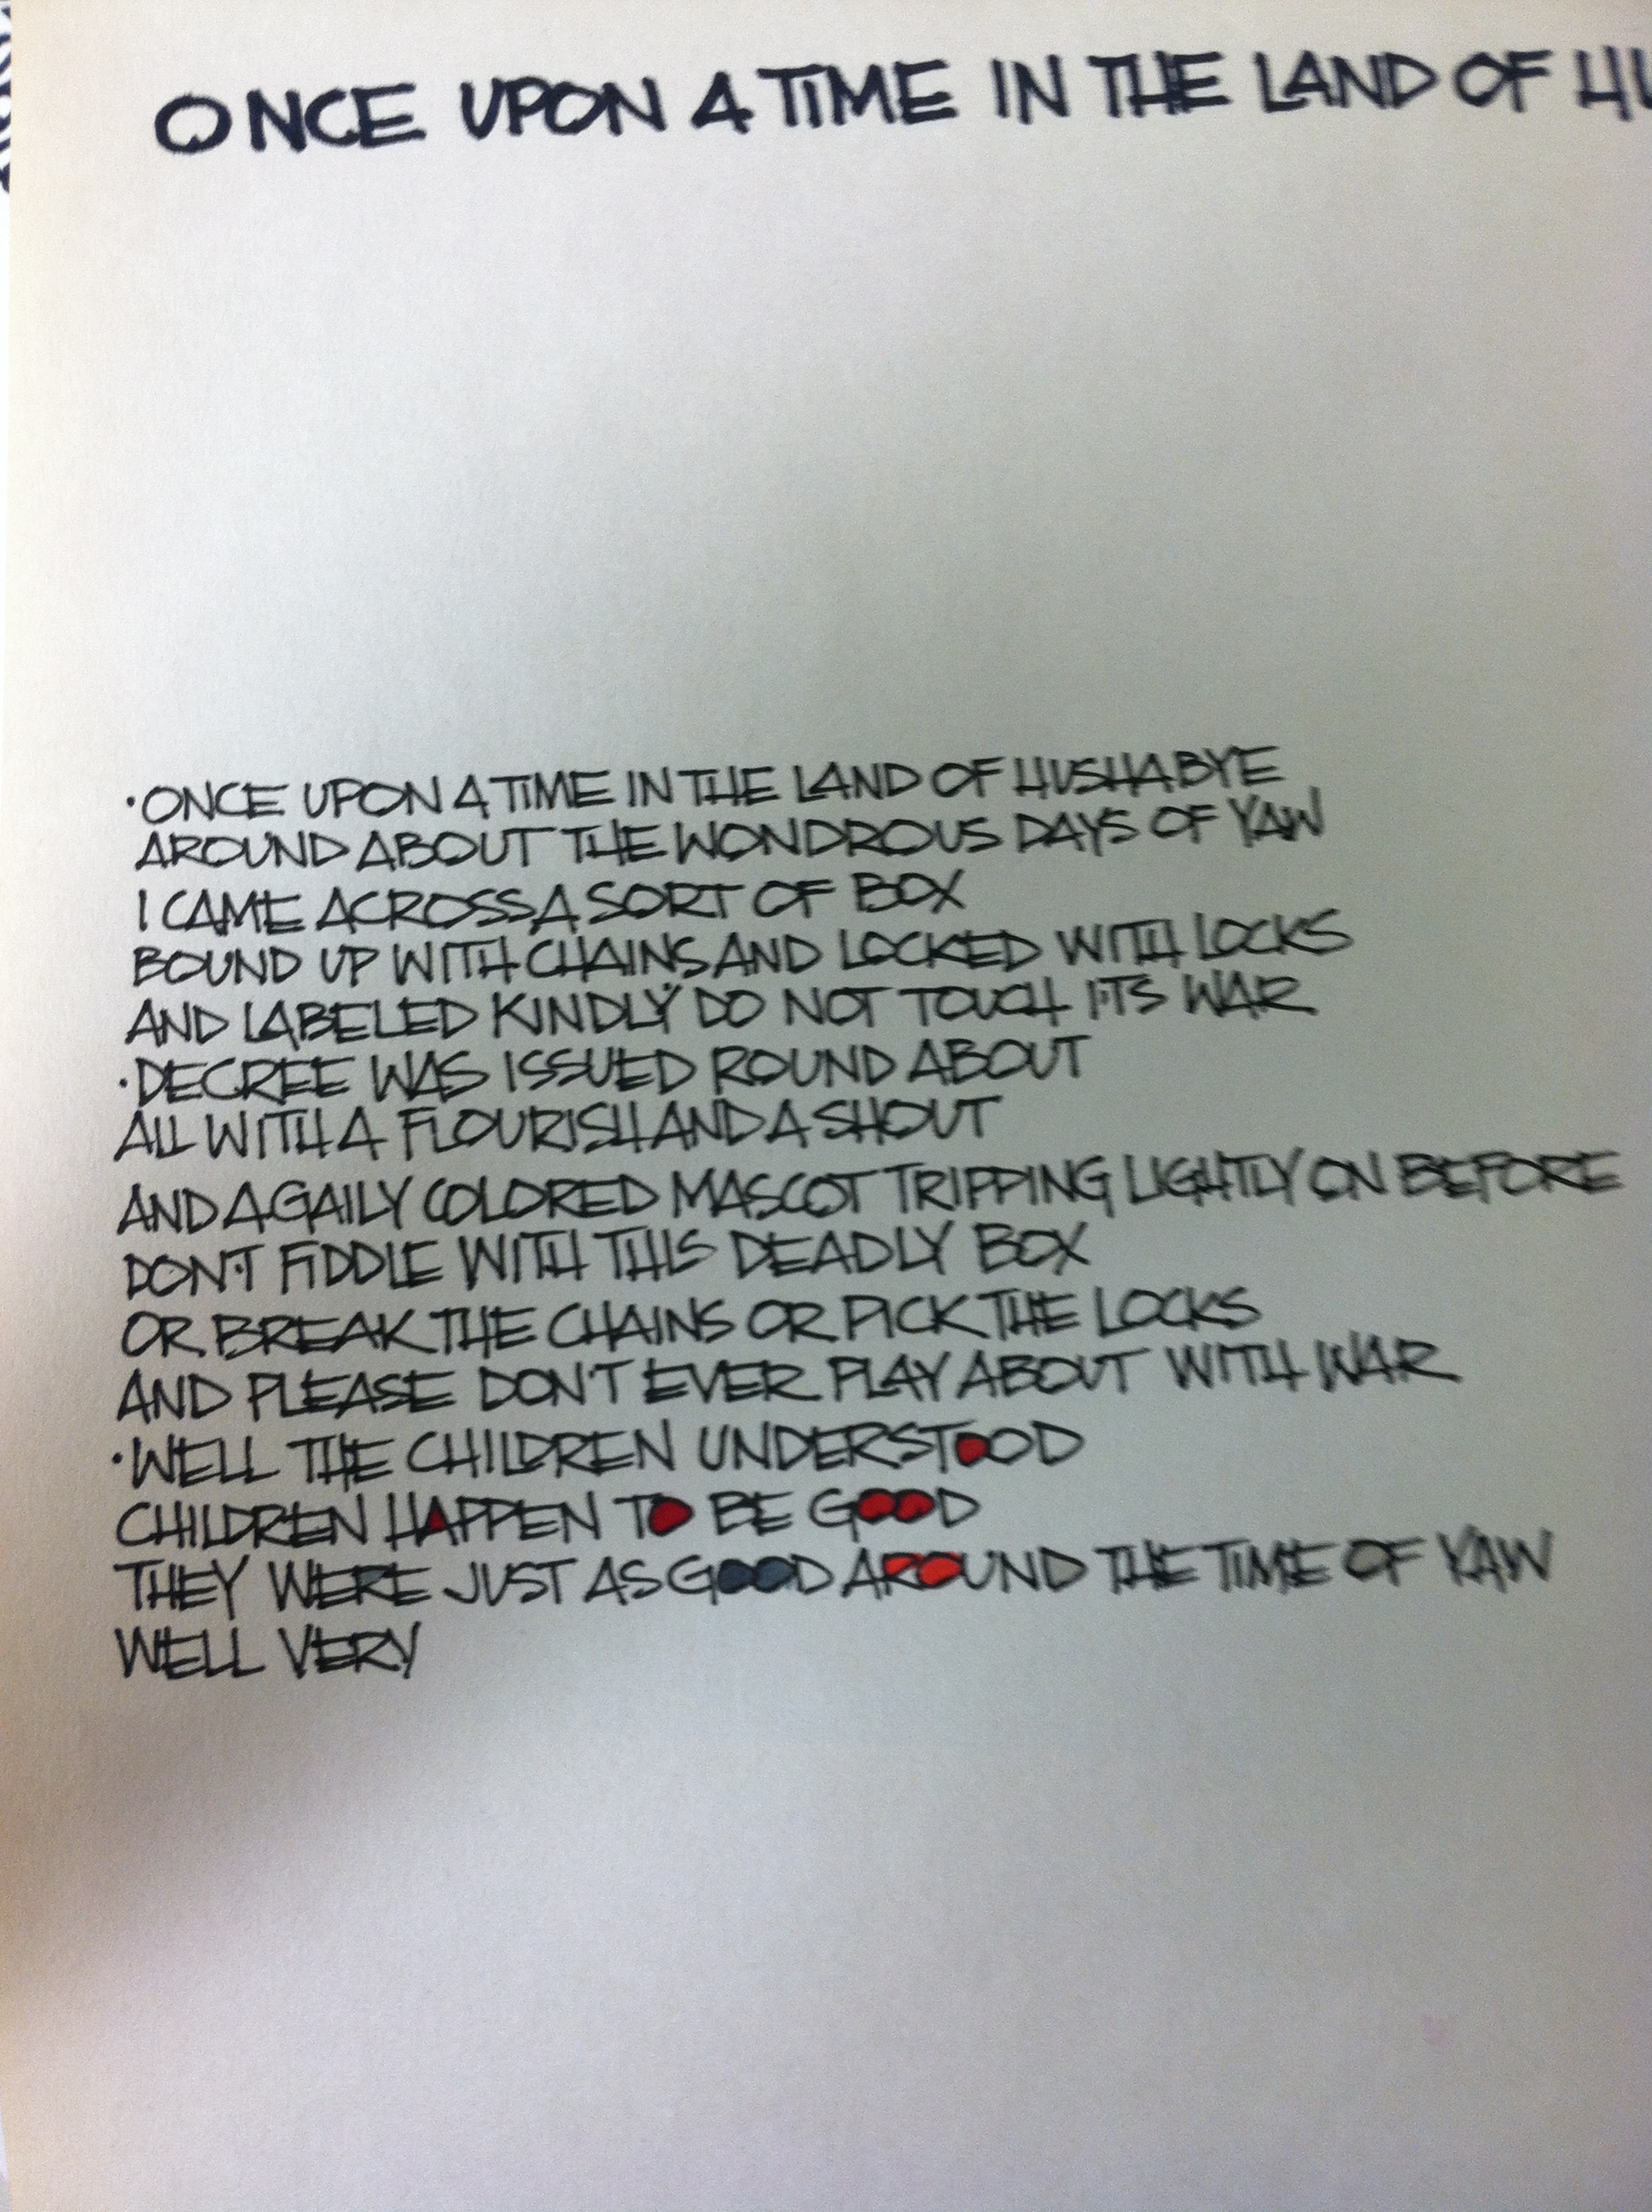 ONCE UPON A TIME IN THE LAND OF HU
·ONCE UPON A TIME IN THE LAND OF HUSHABYE
AROUND ABOUT THE WONDROUS DAYS OF YAW
I CAME ACROSS A SORT OF BOX
BOUND UP WITH CHAINS AND LOCKED WITH LOCKS
AND LABELED KINDLY DO NOT TOUCH IT'S WAR
·DECREE WAS ISSUED ROUND ABOUT
ALL WITH A FLOURISH AND A SHOUT
AND A GAILY COLORED MASCOT TRIPPING LIGHTLY ON BEFORE
DON'T FIDDLE WITH THIS DEADLY BOX
OR BREAK THE CHAINS OR PICK THE LOCKS
AND PLEASE DON'T EVER PLAY ABOUT WITH WAR
·WELL THE CHILDREN UNDERSTOOD
CHILDREN HAPPEN TO BE GOOD
THEY WERE JUST AS GOOD AROUND THE TIME OF YAW
WELL VERY